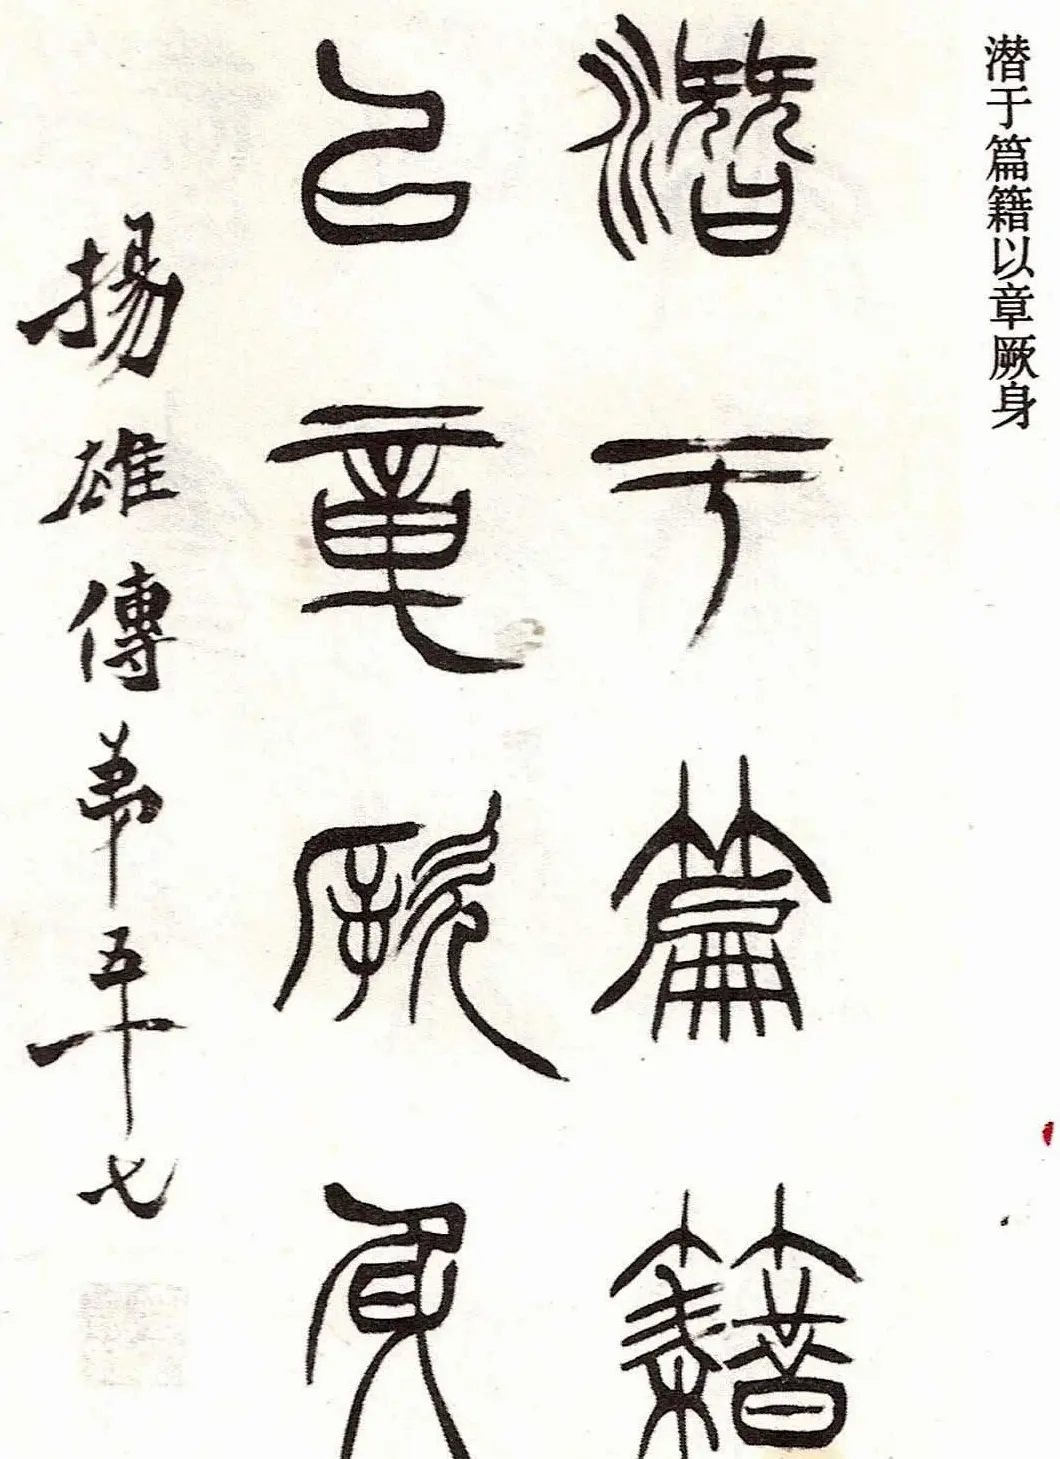 潜于篇籍以章厥身
潛于篇籍
㠯章厥身
揚雄傳弟五十七